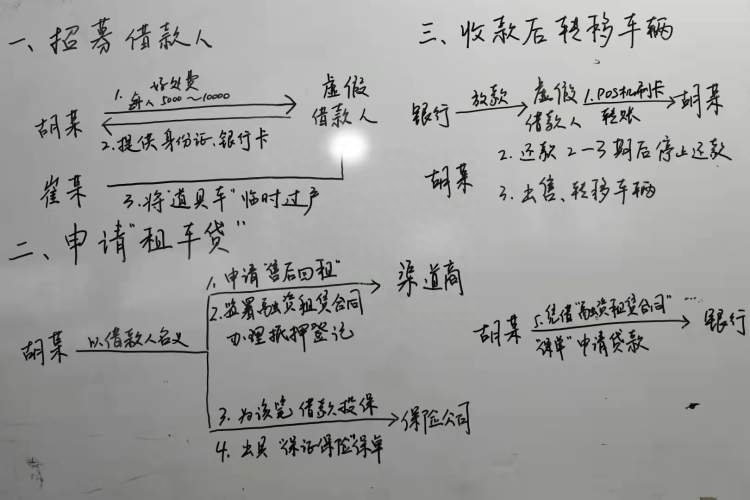 一、招募借款人
1. 好处费
每人5000~10000
胡某
虚假
借款人
2.提供身份证、银行卡
崔某
3.将"道具车"临时过户
二、申请"租车贷"
胡某
以借款人名义
1.申请"售后回租"
渠道商
2.签署融资租赁合同
办理抵押登记
3.为该笔借款投保
保险公司
4.出具"保证保险"保单
三、收款后转移车辆
银行
放款
虚假
借款人
1.POS机刷卡
转账
胡某
胡某
2.还款2-3期后停止还款
3.出售、转移车辆
胡某
5.凭借"融资租赁合同"
"保单"申请贷款
银行